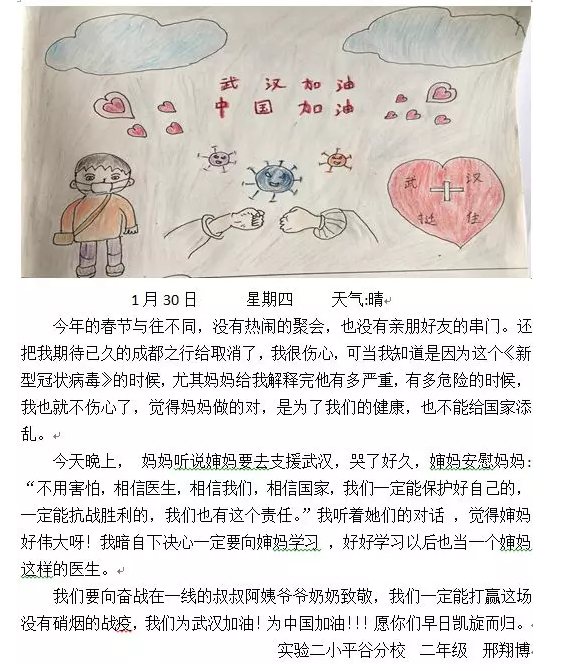 武汉加油
中国加油
武汉
挺住
1月30日 星期四 天气:晴
今年的春节与往不同，没有热闹的聚会，也没有亲朋好友的串门。还
把我期待已久的成都之行给取消了，我很伤心，可当我知道是因为这个《新
型冠状病毒》的时候，尤其妈妈给我解释完他有多严重，有多危险的时候，
我也就不伤心了，觉得妈妈做的对，是为了我们的健康，也不能给国家添
乱。
今天晚上， 妈妈听说婶妈要去支援武汉，哭了好久，婶妈安慰妈妈：
“不用害怕，相信医生，相信我们，相信国家，我们一定能保护好自己的，
一定能抗战胜利的，我们也有这个责任。”我听着她们的对话 ，觉得婶妈
好伟大呀！我暗自下决心一定要向婶妈学习 ，好好学习以后也当一个婶妈
这样的医生。
我们要向奋战在一线的叔叔阿姨爷爷奶奶致敬，我们一定能打赢这场
没有硝烟的战疫，我们为武汉加油！为中国加油！！！愿你们早日凯旋而归。
实验二小平谷分校 二年级 邢翔博